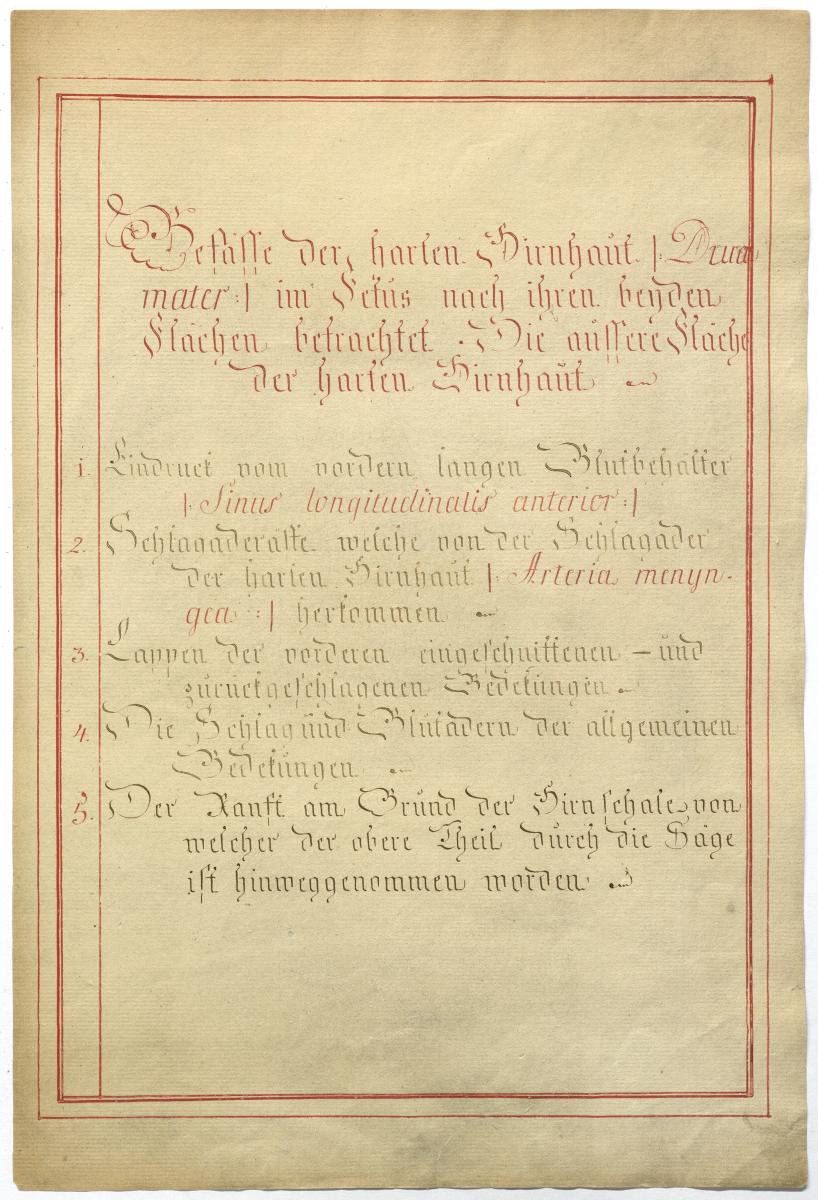 Gefässe der harten Hirnhaüt |: Drua
mater :| im Fetüs nach ihren beyden
Flächen betrachtet. Die aüssere Fläche
der harten Hirnhaüt
1. Eindruck vom vordern langen Blutbehälter
|: Sinus longitudinalis anterior :|
2. Schlagaderäste welche von der Schlagader
der harten Hirnhaüt |: Arteria menyn-
gea :| herkommen
3. Lappen der vorderen eingeschnittenen – ünd
zürückgeschlagenen Bedeküngen
4. Die Schlag ünd Blütadern der allgemeinen
Bedeküngen
5. Der Ranft am Gründ der Hirnschale, von
welcher der obere Theil dürch die Säge
ist hinweggenommen worden